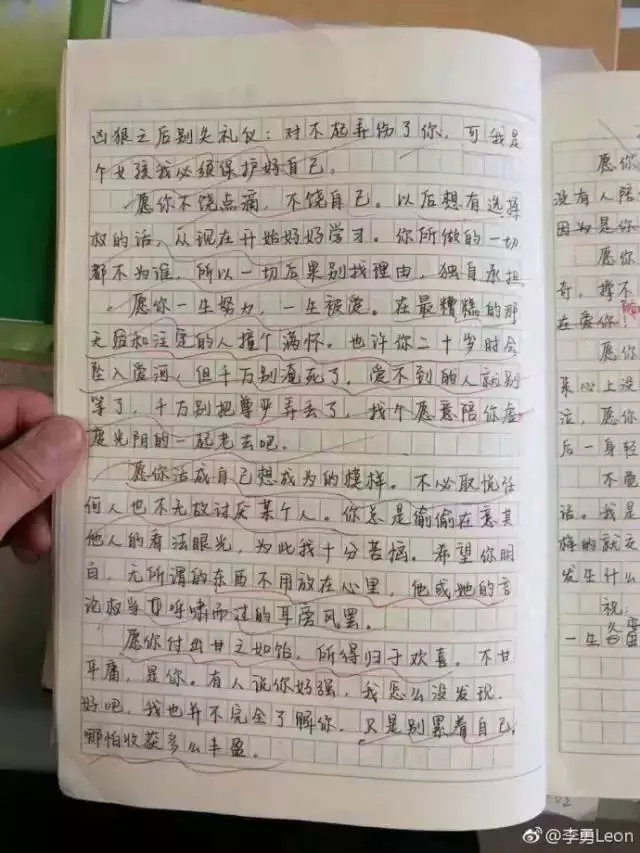 凶狠之后别失礼仪：对不起弄伤了你，可我是
个女孩我必须保护好自己。
愿你不饶点滴，不饶自己。以后想有选择
权的话，从现在开始好好学习。你所做的一切
都不为谁，所以一切后果别找理由，独自承担
愿你一生努力，一生被爱。在最糟糕的那
天遇和注定的人撞个满怀。也许你二十岁时会
坠入爱河，但千万别淹死了，爱不到的人就别
等了，千万别把尊严弄丢了，找个愿意陪你虚
度光阴的一起老去吧。
愿你活成自己想成为的模样。不必取悦任
何人也不无故讨厌某个人。你总是偷偷在意其
他人的看法眼光，为此我十分苦恼。希望你明
白，无所谓的东西不用放在心里，他或她的言
论权当耳呼啸而过的耳旁风罢。
愿你付出甘之如饴，所得归于欢喜。不甘
平庸，是你。有人说你好强，我怎么没发现，
好吧，我也并不完全了解你，只是别累着自己，
哪怕收获多么丰盈。
愿你
没有人陪
因为是你
愿你
奇，撑不
在爱你！
愿你
来心上没
泣，愿你
后一身轻
不
话。我是
就
发生什么
祝：
一生
@李勇Leon